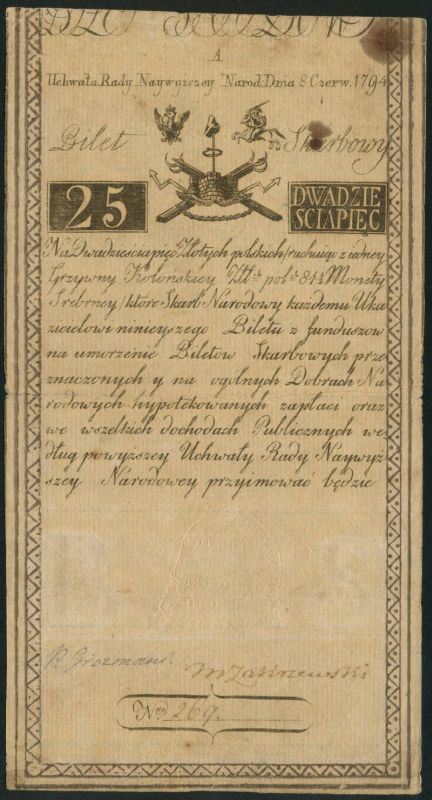 A
Uchwała Rady Naywyższey Narod: Dnia 8 Czerw. 1794
Bilet Skarbowy
25
DWADZIE
SCIAPIEC
Na Dwadzieściapięć Złotych polskich /rachuiąc z iedney
Grzywny Kolońskiey Złł: pol: 84½ Monety
Srebrney/ które Skarb Narodowy każdemu Uka-
zicielowi ninieyszego Biletu z funduszow
na umorzenie Biletow Skarbowych prze-
znaczonych y na ogolnych Dobrach Na-
rodowych hypotekowanych zapłaci oraz
we wszelkich dochodach Publicznych we-
dług powyższey Uchwały Rady Naywyż-
szey Narodowey przyimować będzie
P. Grozmani
M Zakrzewski
Nro 269.